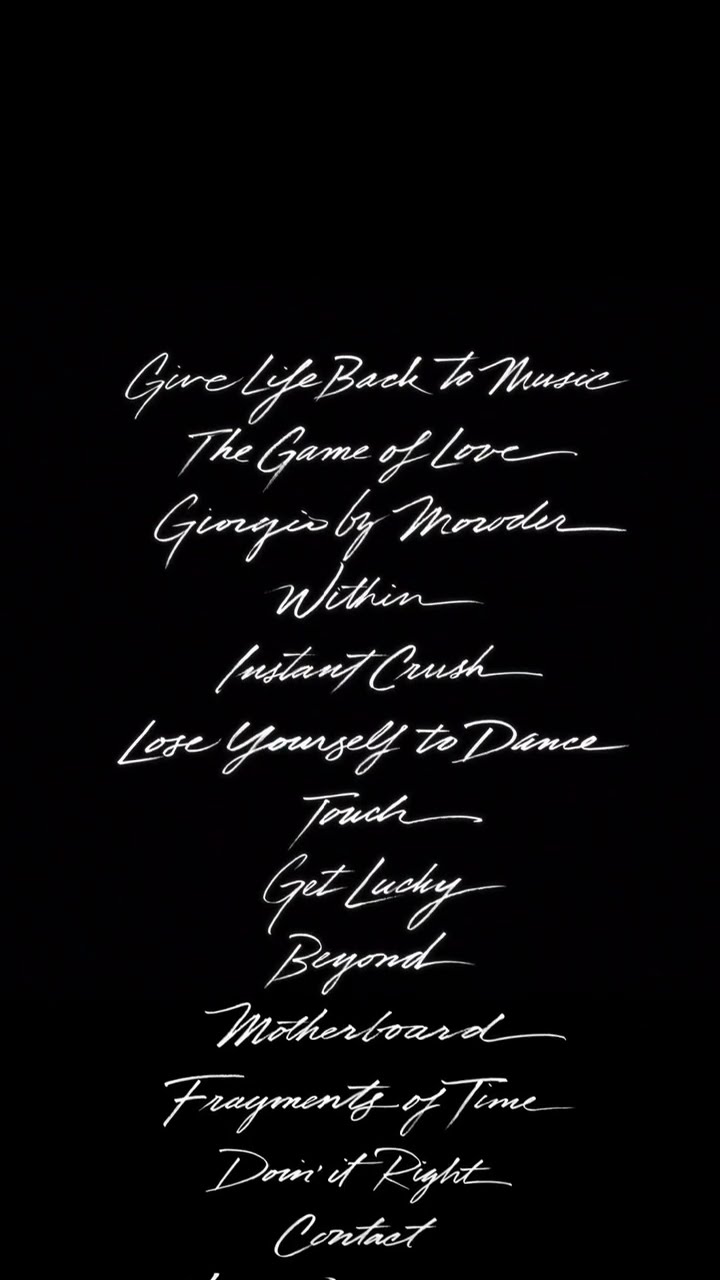 Give Life Back to Music
The Game of Love
Giorgio by Moroder
Within
Instant Crush
Lose Yourself to Dance
Touch
Get Lucky
Beyond
Motherboard
Fragments of Time
Doin' it Right
Contact